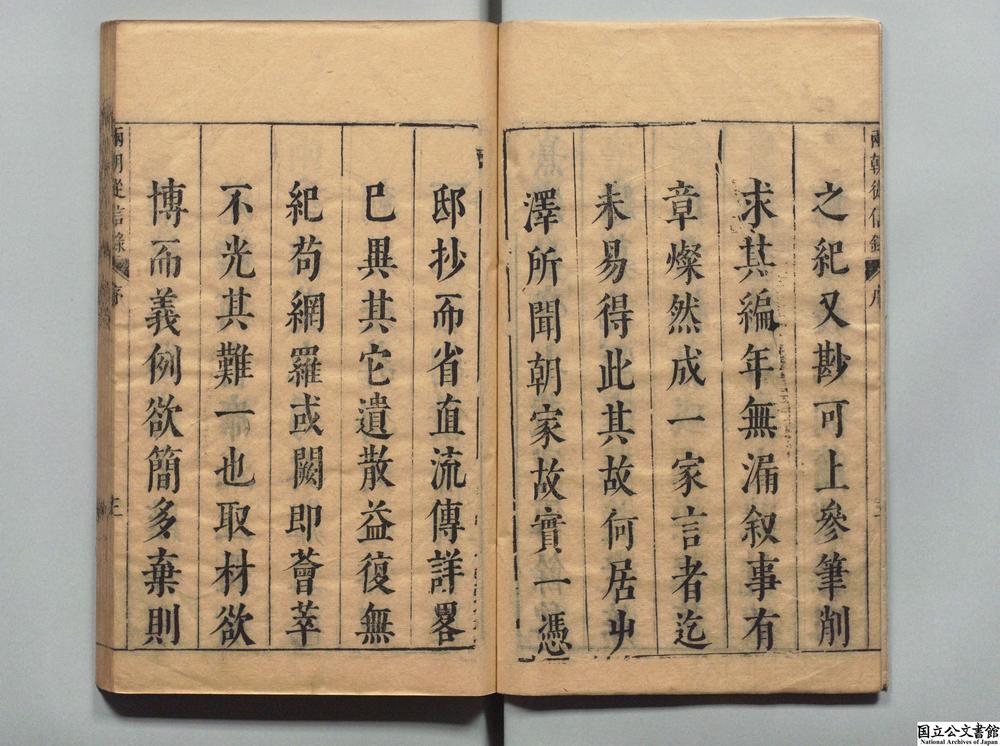 兩朝從信錄 序
之紀又尠可上參筆削
求其編年無漏叙事有
章燦然成一家言者迄
未易得此其故何居山
澤所聞朝家故實一憑
邸抄而省直流傳詳畧
已異其它遺散益復無
紀苟網羅或闕即薈萃
不光其難一也取材欲
博而義例欲簡多棄則
兩朝從信錄 序
国立公文書館
National Archives of Japan